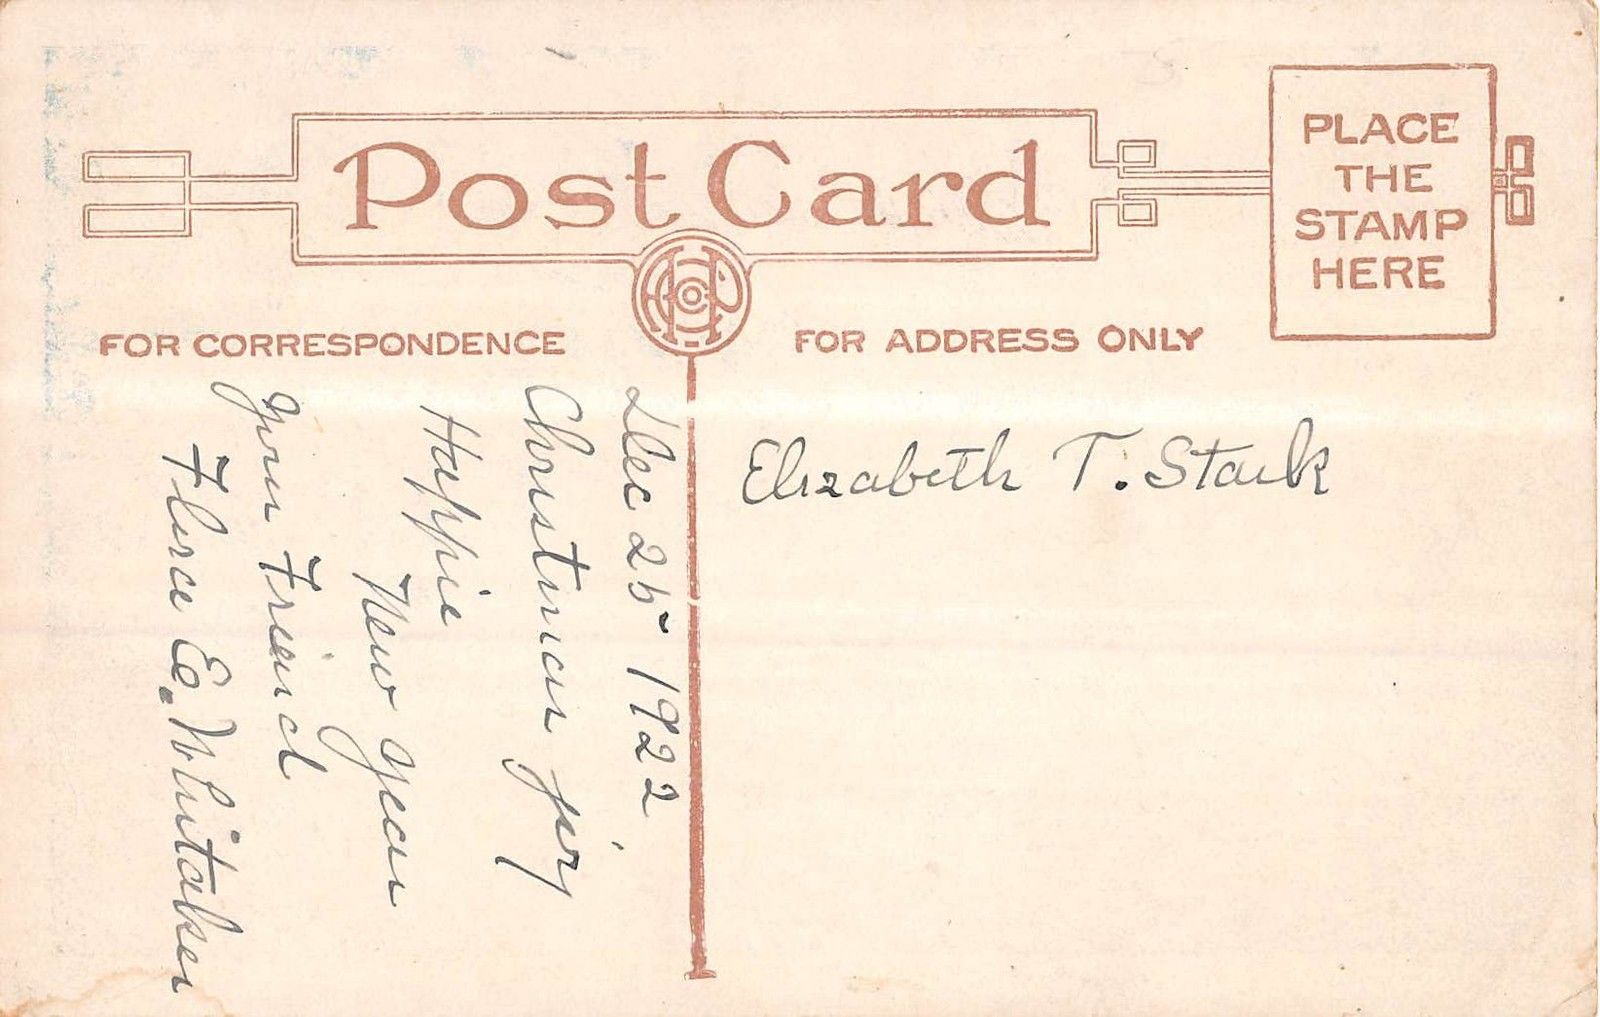 Post Card
PLACE
THE
STAMP
HERE
FOR CORRESPONDENCE
FOR ADDRESS ONLY
Dec 25 1922
Christmas joy
Happie
New year
your Freind
E. Whitaker
Elizabeth T. Stark